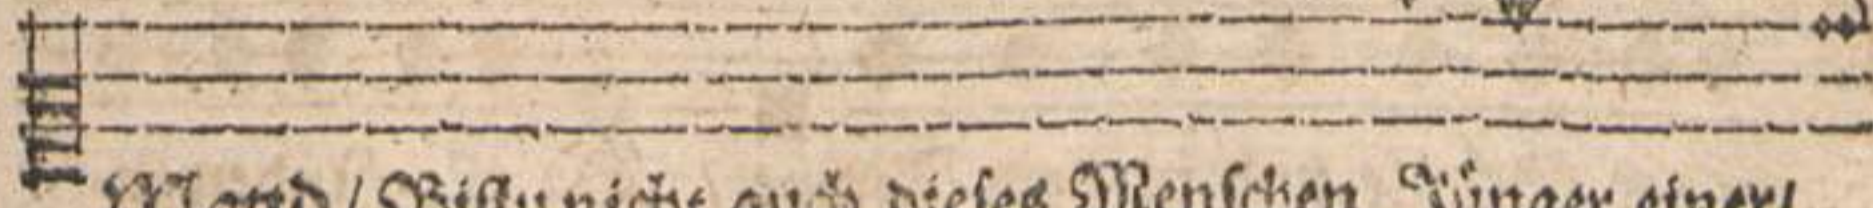 Magd / Bistu nicht auch dieses Menschen Jünger einer?